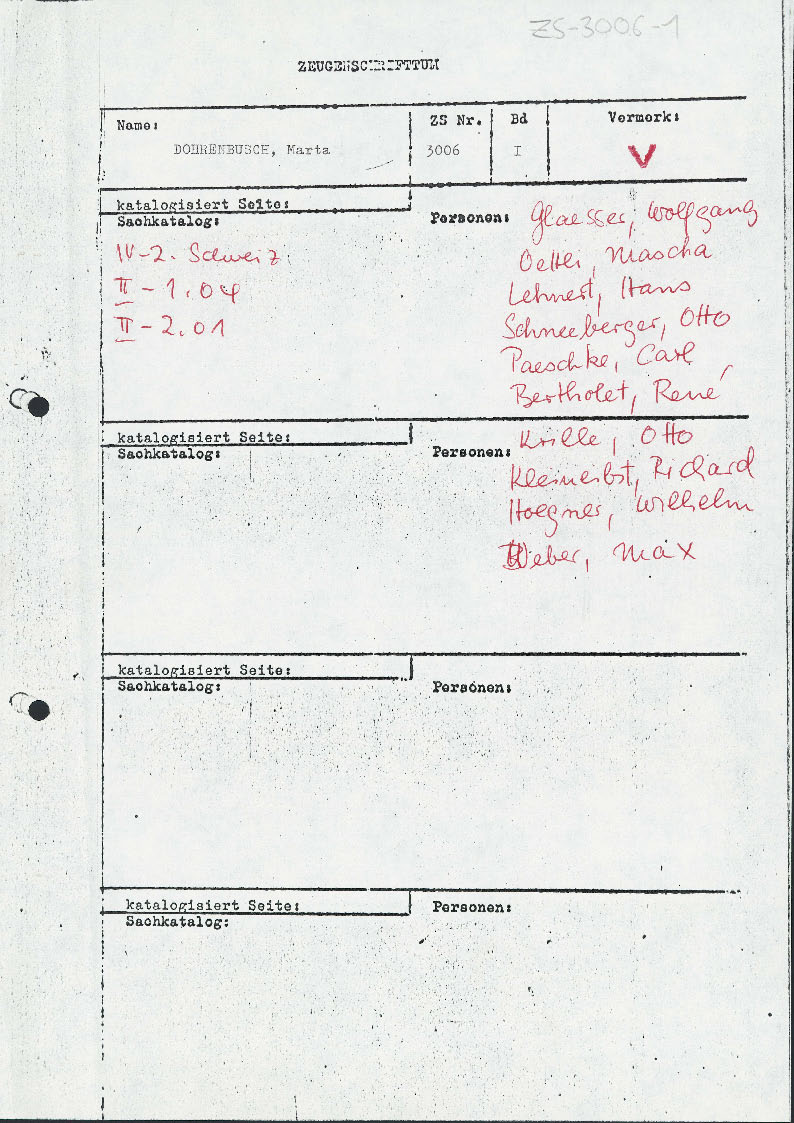 ZS-3006-1
ZEUGENSCHRIFTTUM
Name: ZS Nr. Bd Vermerk:
DOHRENBUSCH, Marta 3006 I V
katalogisiert Seite:
Sachkatalog: Personen: Glaesser, Wolfgang
IV-2. Schweiz Oettli, Mascha
II-1.04 Lehnert, Hans
II-2.01 Schneeberger, Otto
Paeschke, Carl
Bertholet, René
katalogisiert Seite: Krille, Otto
Sachkatalog: Personen:
Kleineibst, Richard
Hoegner, Wilhelm
Weber, Max
katalogisiert Seite:
Sachkatalog: Personen:
katalogisiert Seite: Personen:
Sachkatalog: